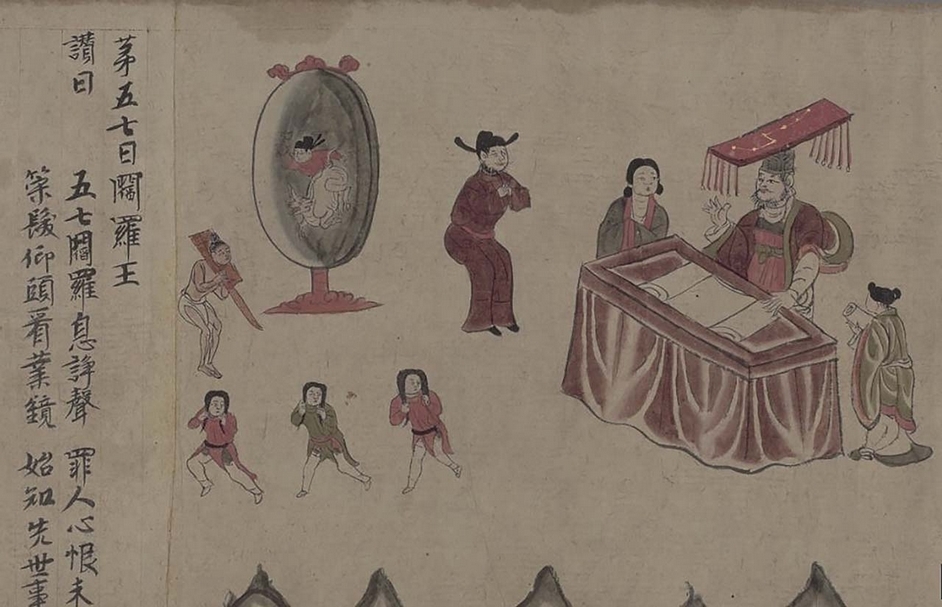 苐五七日閻羅王
讚曰 五七閻羅息諍聲 罪人心恨未
策髮仰頭看業鏡 始知先世事